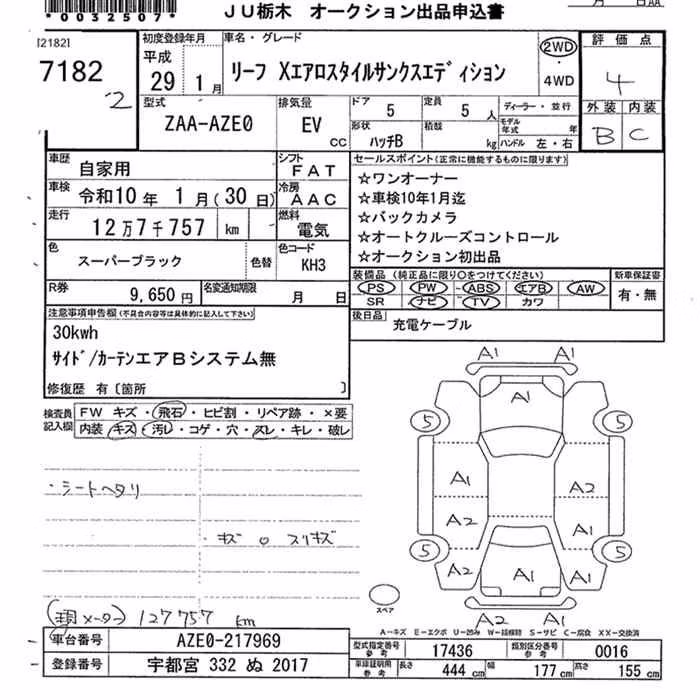 *0032507*
JU栃木 オークション出品申込書
月 日AA
[2182]
7182
2
初度登録年月
平成
29 1月
車名・グレード
リーフ Xエアロスタイルサンクスエディション
2WD
・
4WD
評価点
4
外装 内装
B C
型式
ZAA-AZE0
排気量
EV
CC
ドア 5
定員 5人
ディーラー・並行
形状
ハッチB
積載
kg
モデル年式 年
ハンドル 左・右
車歴
自家用
シフト
FAT
車検
令和10年 1月(30日)
冷房
AAC
走行
12万7千757 km
燃料
電気
色
スーパーブラック
色替
色コード
KH3
R券
9,650円
名変通知期限
月 日
セールスポイント(正常に機能するものに限ります)
☆ワンオーナー
☆車検10年1月迄
☆バックカメラ
☆オートクルーズコントロール
☆オークション初出品
装備品(純正品に限り○をつけてください)
新車保証書
PS PW ABS エアB AW
SR ナビ TV カワ
有・無
後日品
充電ケーブル
注意事項申告欄(不具合内容等は具体的に記入して下さい)
30kwh
サイド/カーテンエアBシステム無
修復歴 有〔箇所 〕
検査員記入欄
FW キズ・飛石・ヒビ割・リペア跡・×要
内装 キズ・汚レ・コゲ・穴・スレ・キレ・破レ
・シートヘタリ
・キズ ○ スリキズ
(現メーター) 127757 km
A1 A1
A1
5 5
A1 A2
A2 A1
5 5
A2 A1 A1
スペア
A2 A1
A-キズ E-エクボ U-凹み W-補修跡 S-サビ C-腐食 XX-交換済
車台番号
AZE0-217969
登録番号
宇都宮 332 ぬ 2017
型式指定番号 参考
17436
類別区分番号 参考
0016
車庫証明用 参考
長さ 444 cm 幅 177 cm 高さ 155 cm